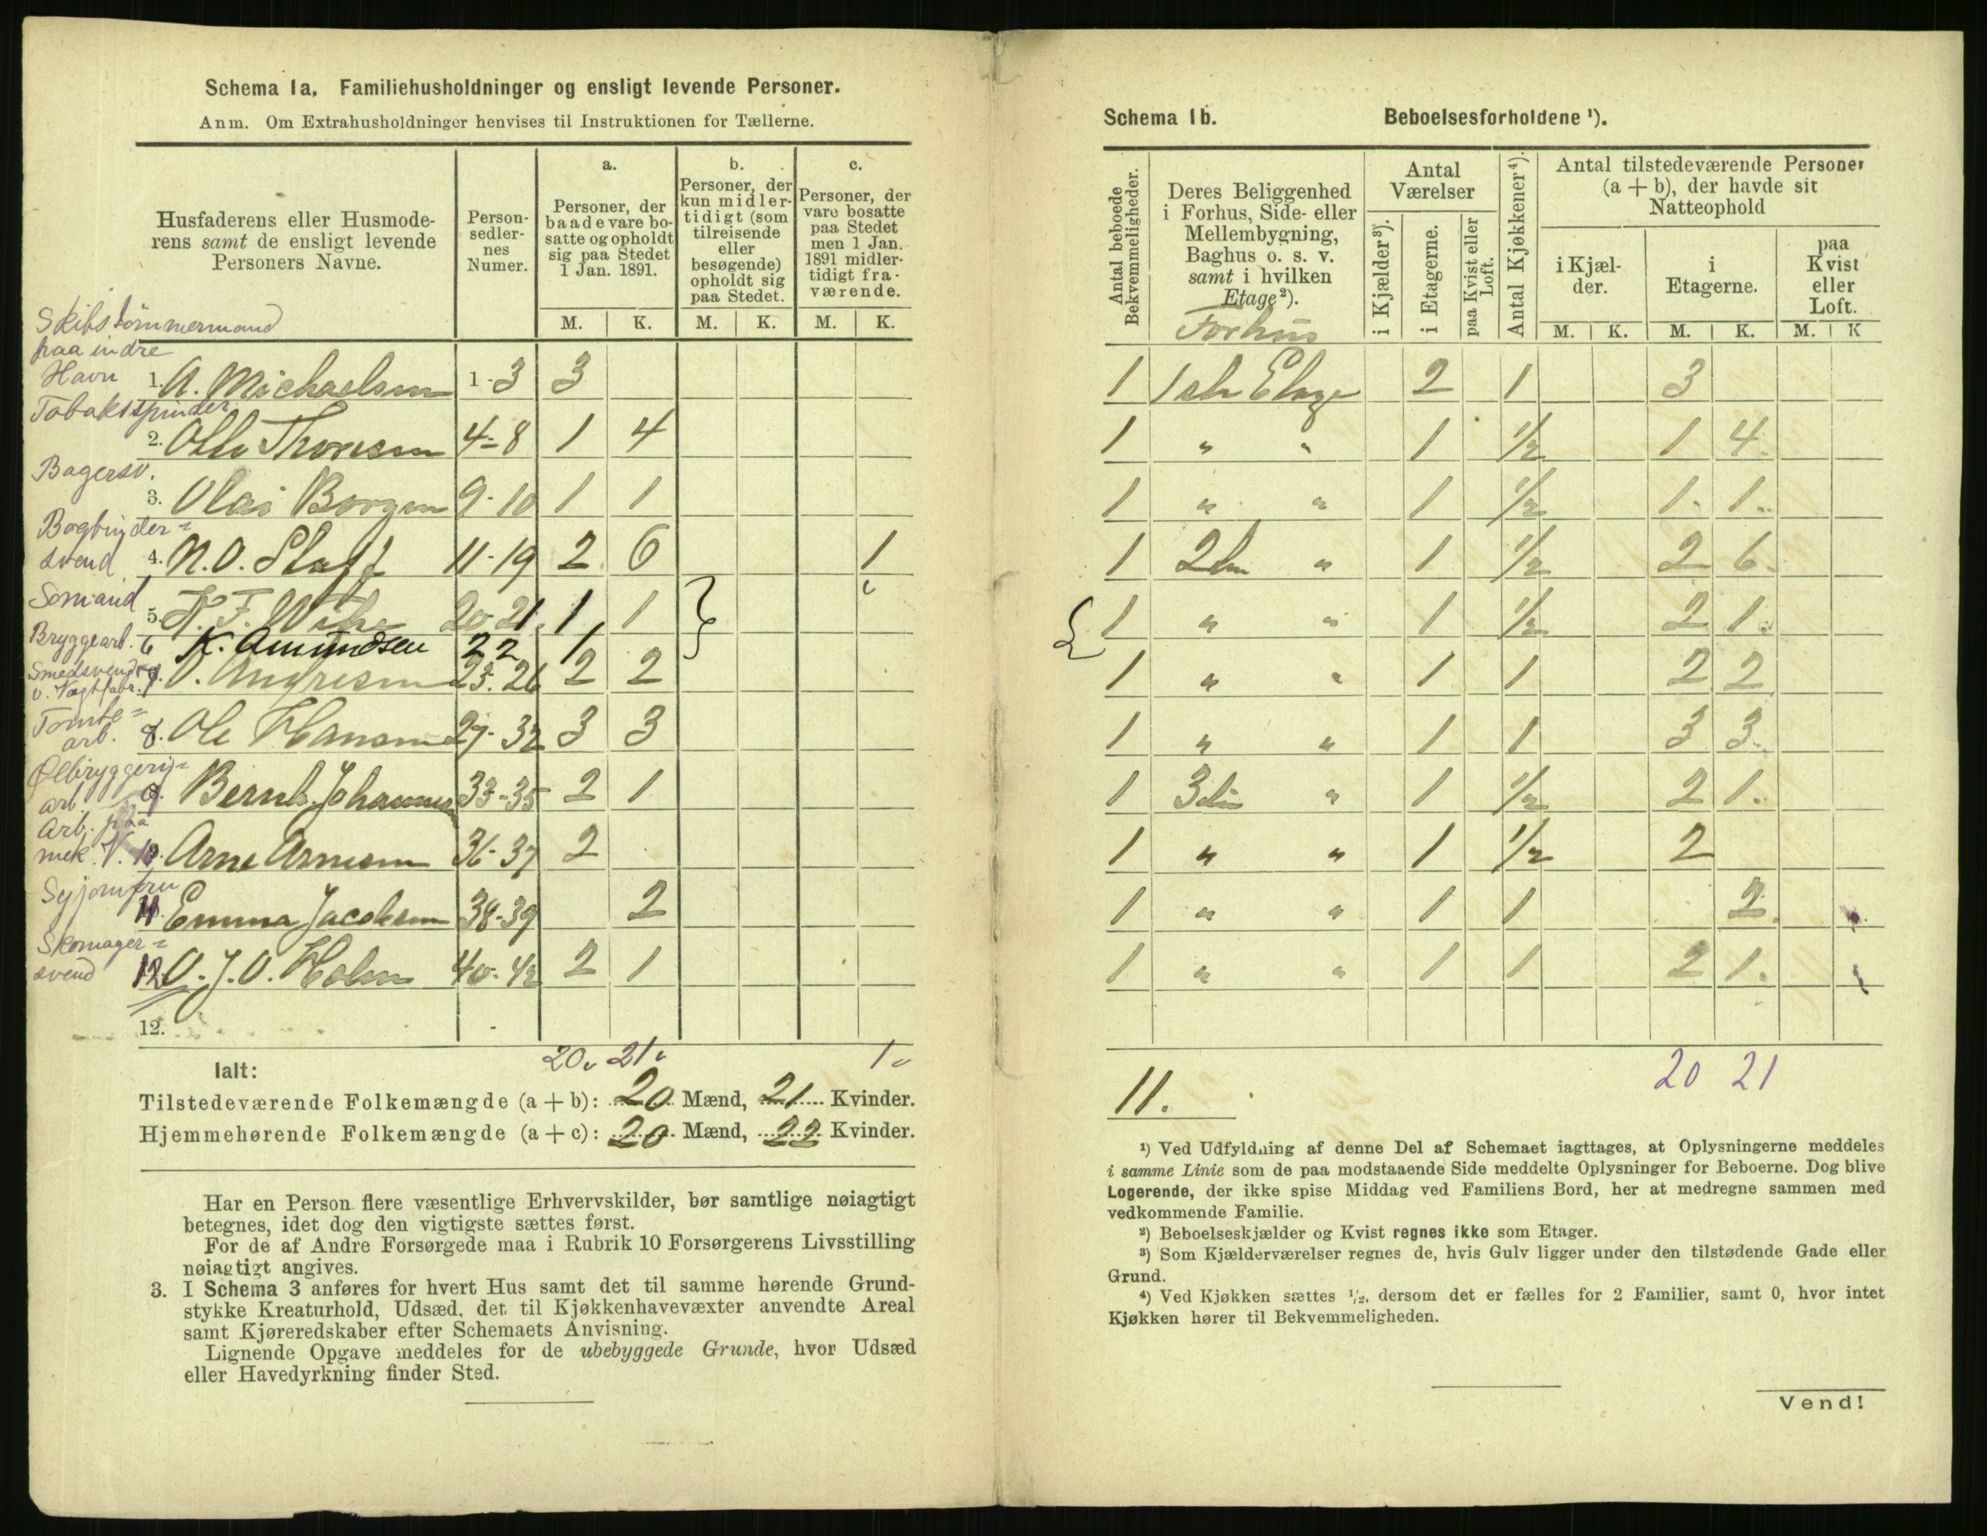 Schema 1a. Familiehusholdninger og ensligt levende Personer.
Anm. Om Extrahusholdninger henvises til Instruktionen for Tællerne.
Husfaderens eller Husmoderens samt de ensligt levende Personers Navne.
Personsedlernes Numer.
a. Personer, der baade vare bosatte og opholdt sig paa Stedet 1 Jan. 1891.
b. Personer, der kun midlertidigt (som tilreisende eller besøgende) opholdt sig paa Stedet.
c. Personer, der vare bosatte paa Stedet men 1 Jan. 1891 midlertidigt fraværende.
M. K. M. K. M. K.
Skibstømmermand paa indre Havn 1. A. Michaelsen 1-3 3
Tobakspinder 2. Olle Thoresen 4-8 1 4
Bagersv. 3. Olai Borgen 9-10 1 1
Bogbinder=svend 4. N.O. Staff 11-19 2 6 1
Sømand 5. 20-21 1 1
Bryggearb. 6 K. Amundsen 22 1
Smedsvend 23-26 2 2
Tomte=arb. 8. Ole Hansen 27-32 3 3
Ølbryggeri=arb. 9. Bernh. Johannes 33-35 2 1
Arb. paa mek. V. 10. Arne Arnesen 36-37 2
Syjomfru 11. Emma Jacobsen 38-39 2
Skomager=svend 12. O.J.O. Holm 40-42 2 1
12.
20 21 1
Ialt:
Tilstedeværende Folkemængde (a + b): 20 Mænd, 21 Kvinder.
Hjemmehørende Folkemængde (a + c): 20 Mænd, 22 Kvinder.
Har en Person flere væsentlige Erhvervskilder, bør samtlige nøiagtigt
betegnes, idet dog den vigtigste sættes først.
For de af Andre Forsørgede maa i Rubrik 10 Forsørgerens Livsstilling
nøiagtigt angives.
3. I Schema 3 anføres for hvert Hus samt det til samme hørende Grund-
stykke Kreaturhold, Udsæd, det til Kjøkkenhavevæxter anvendte Areal
samt Kjøreredskaber efter Schemaets Anvisning.
Lignende Opgave meddeles for de ubebyggede Grunde, hvor Udsæd
eller Havedyrkning finder Sted.
Schema 1b. Beboelsesforholdene ¹).
Antal beboede Bekvemmeligheder.
Deres Beliggenhed i Forhus, Side- eller Mellembygning, Baghus o. s. v. samt i hvilken Etage²).
Forhus
Antal Værelser
i Kjælder³). i Etagerne. paa Kvist eller Loft.
Antal Kjøkkener⁴).
Antal tilstedeværende Personer (a + b), der havde sit Natteophold
i Kjælder. i Etagerne. paa Kvist eller Loft.
M. K. M. K. M. K
1 1ste Etage 2 1 3
1 " " 1 1/2 1 4
1 " " 1 1/2 1 1
1 2den " 1 1/2 2 6
1 " " 1 1/2 2 1
1 " " 1 1 2 2
1 " " 1 1 3 3
1 3die " 1 1/2 2 1
1 " " 1 1/2 2
1 " " 1 1 2
1 " " 1 1 2 1
11. 20 21
¹) Ved Udfyldning af denne Del af Schemaet iagttages, at Oplysningerne meddeles
i samme Linie som de paa modstaaende Side meddelte Oplysninger for Beboerne. Dog blive
Logerende, der ikke spise Middag ved Familiens Bord, her at medregne sammen med
vedkommende Familie.
²) Beboelseskjælder og Kvist regnes ikke som Etager.
³) Som Kjælderværelser regnes de, hvis Gulv ligger under den tilstødende Gade eller
Grund.
⁴) Ved Kjøkken sættes ¹/₂, dersom det er fælles for 2 Familier, samt 0, hvor intet
Kjøkken hører til Bekvemmeligheden.
Vend!